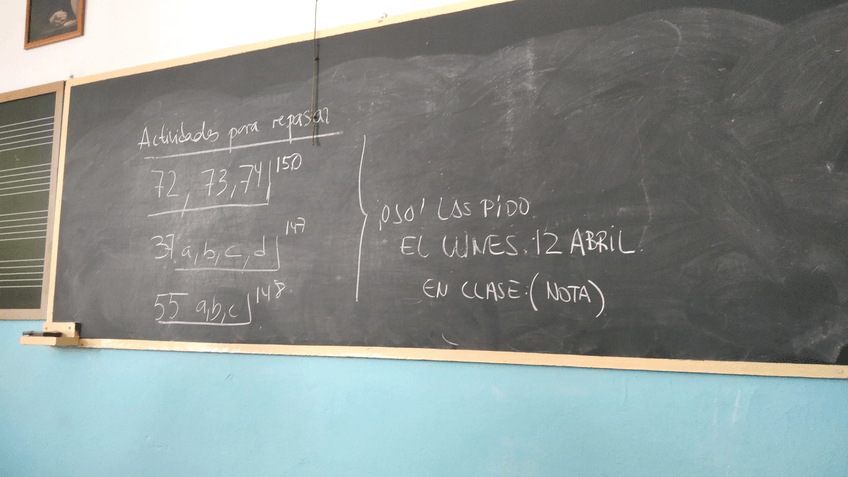 Actividades para repasar
72, 73, 74 150
37 a, b, c, d 147
55 a, b, c 148
¡OJO! LAS PIDO
EL LUNES. 12 ABRIL.
EN CLASE: (NOTA)